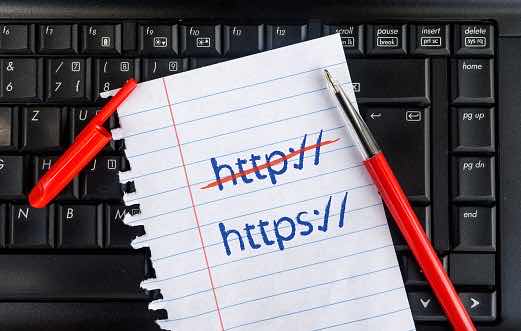 f6 f7 f8 f9 f10 f11 scroll pause break insert prt sc delete sys rq
& 6 / 7 ( 8 home
Z U pg up
H J pg dn
N B end
http://
https://